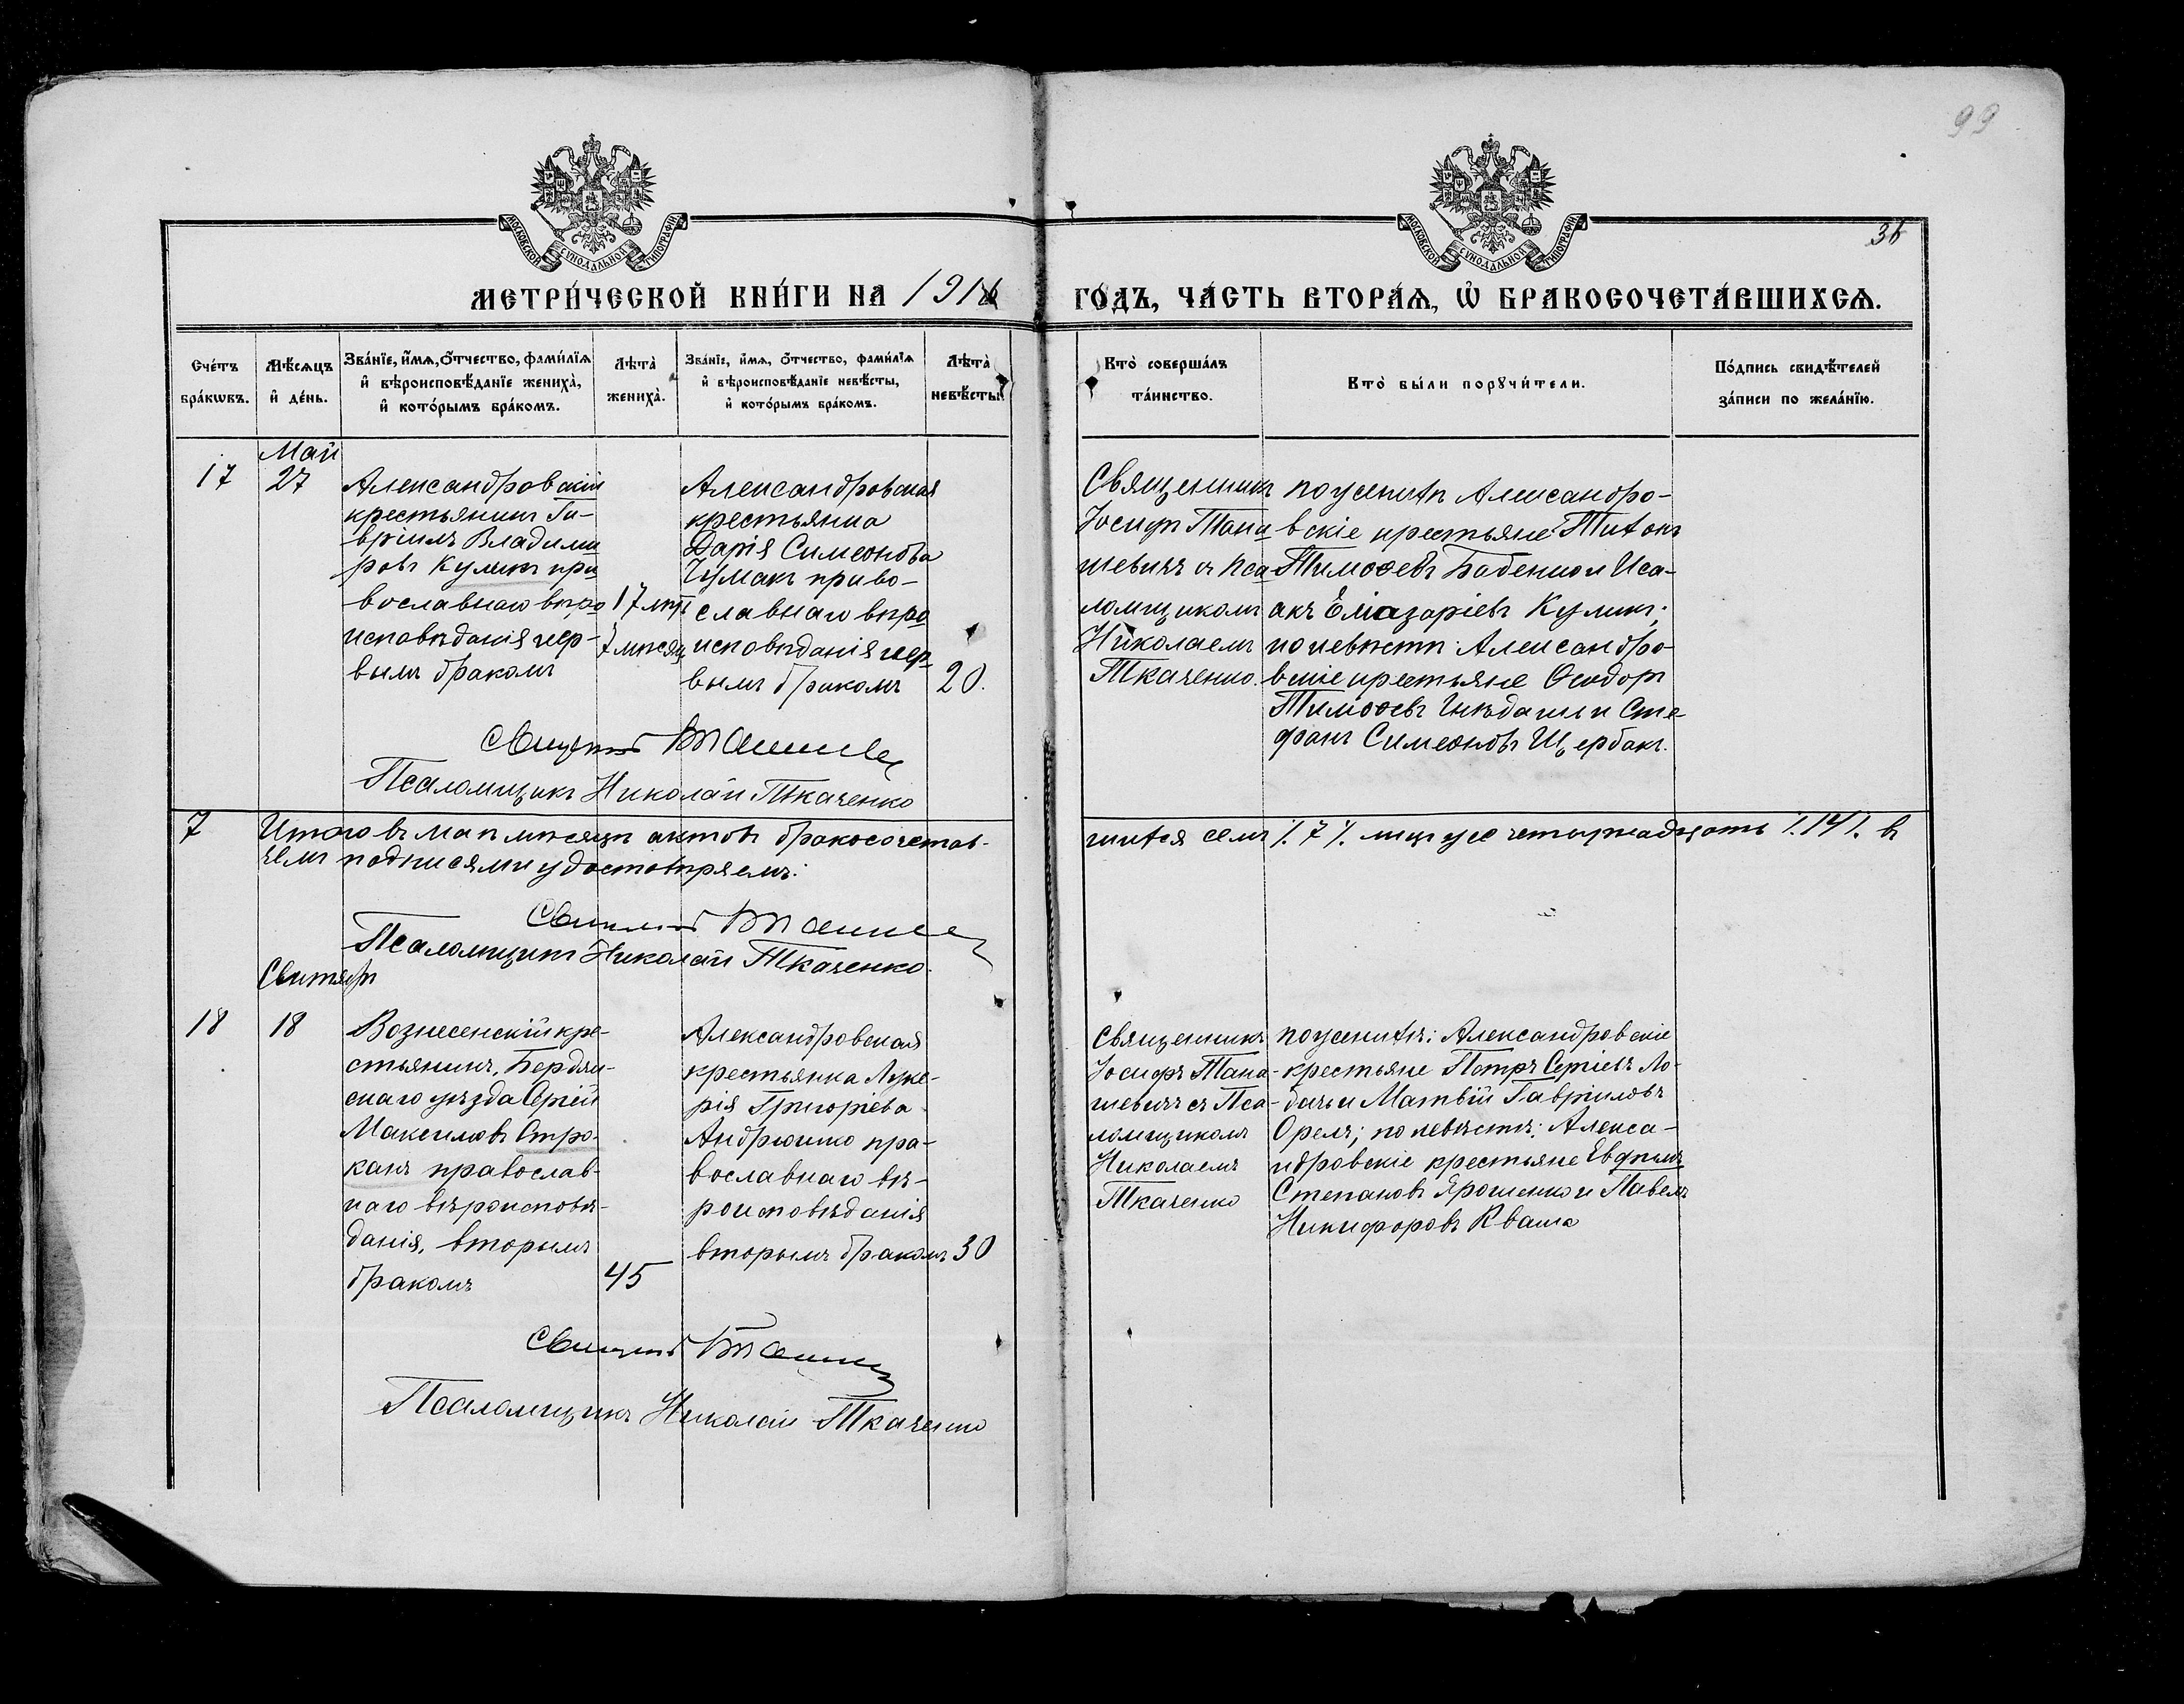 99
МОСКОВСКОЙ СУНОДАЛЬНОЙ ТИПОГРАФІИ
МОСКОВСКОЙ СУНОДАЛЬНОЙ ТИПОГРАФІИ
36
МЕТРИ́ЧЕСКОЙ КНИ́ГИ НА 1916
ГОДЪ, ЧА́СТЬ ВТОРА́Я, Ѡ҆ БРАКОСОЧЕТА́ВШИХСѦ.
Сче́тъ бра́кѡвъ.
Мѣ́сяцъ и҆ де́нь.
Зва́нїе, и҆́мѧ, ѻ҆́тчество, фами́лїѧ
и҆ вѣроисповѣ́данїе жениха̀,
и҆ кото́рымъ бра́комъ.
Лѣта̀ жениха̀.
Зва́нїе, и҆́мѧ, ѻ҆́тчество, фами́лїѧ
и҆ вѣроисповѣ́данїе невѣ́сты,
и҆ кото́рымъ бра́комъ.
Лѣта̀ невѣ́сты.
Кто̀ соверша́лъ та́инство.
Кто̀ бы́ли порꙋчи́тели.
По́дпись свидѣ́телей за́писи по жела́нїю.
Май
17
27
Александровскій
крестьянинъ Га-
вріилъ Владимі
ровъ Куликъ пра
вославнаго вѣро
исповѣданія пер-
вымъ бракомъ
17 лѣтъ
7 мѣсяц
Александровская
крестьянка
Дарія Симеонова
Чумакъ право-
славнаго вѣро
исповѣданія пер
вымъ бракомъ
20.
Священникъ
Іосифъ Тана
шевичъ съ Пса
ломщикомъ
Николаемъ
Ткаченко.
по женихѣ Александро-
вскіе крестьяне: Титъ
Тимоѳеевъ Бабенко и Иса-
акъ Еліазаріевъ Куликъ;
по невѣстѣ: Александро-
вскіе крестьяне Ѳеодоръ
Тимоѳеевъ и Сте-
фанъ Симеоновъ Щербакъ.
Псаломщикъ Николай Ткаченко
7
Итого въ маѣ мѣсяцѣ актовъ бракосочетав-
шихся семь /.7/. лицъ же четырнадцать /.14/. в
чемъ подписями удостовѣряемъ:
Псаломщикъ Николай Ткаченко.
Сентябрь
18
18
Вознесенскій кре-
стьянинъ, Бердян-
скаго уѣзда Сергій
Максимовъ Стро-
канъ православ-
наго вѣроисповѣ-
данія, вторымъ
бракомъ
45
Александровская
крестьянка Луке-
рія Григоріева
Андрющенко пра-
вославнаго вѣ-
роисповѣданія
вторымъ бракомъ
30
Священникъ
Іосифъ Тана-
шевичъ съ Пса-
ломщикомъ
Николаемъ
Ткаченко
по женихѣ: Александровскіе
крестьяне Петръ Сергіевъ Ло-
бачъ и Матвій Гавріиловъ
Орелъ; по невѣстѣ: Алекса-
ндровскіе крестьяне Евфимъ
Степановъ Ярошенко и Павелъ
Никифоровъ Кваша
Псаломщикъ Николай Ткаченко